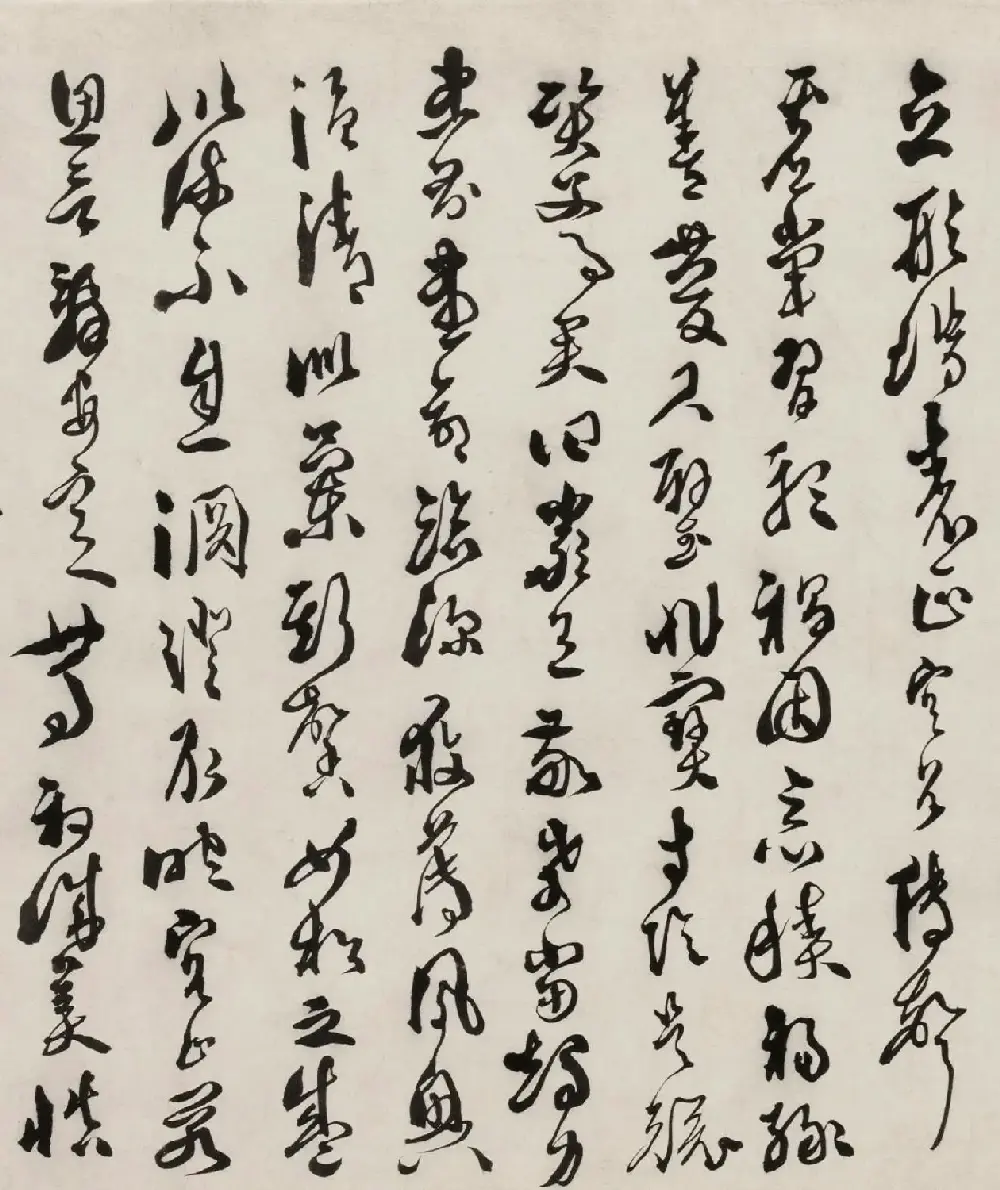 立形端表正空谷傳聲
虛堂習聽禍因惡積福緣
善慶尺璧非寶寸陰是競
資父事君曰嚴與敬孝當竭力
忠則盡命臨深履薄夙興
溫清似蘭斯馨如松之盛
川流不息淵澄取映容止若
思言辭安定篤初誠美慎